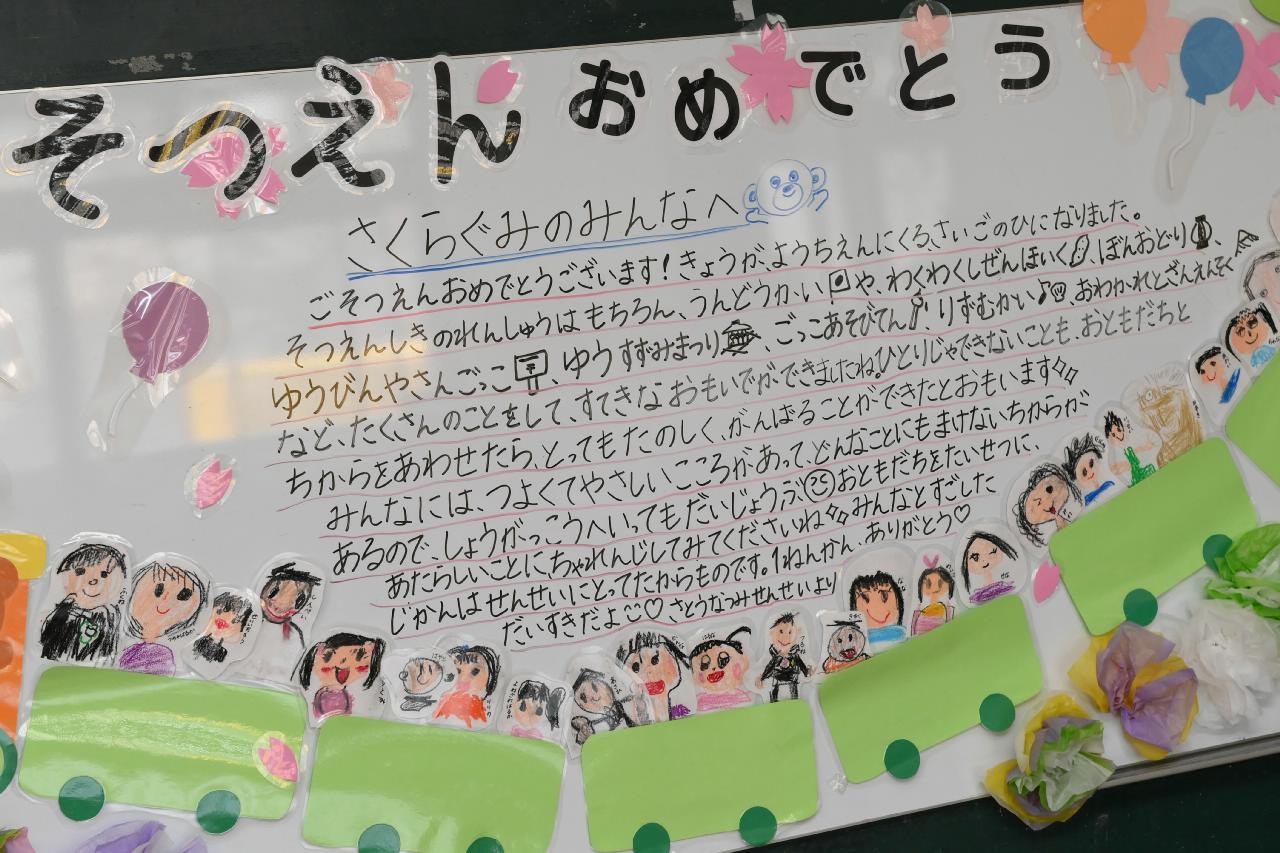 そつえんおめでとう
さくらぐみのみんなへ
ごそつえんおめでとうございます！きょうが、ようちえんにくるさいごのひになりました。
そつえんしきのれんしゅうはもちろん、うんどうかいや、わくわくしぜんほいく、ぼんおどり、
ゆうびんやさんごっこ〒、ゆうすずみまつり、ごっこあそびてん、りずむかい♪、おわかれとざんえんそく
など、たくさんのことをして、すてきなおもいでができましたね。ひとりじゃできないことも、おともだちと
ちからをあわせたら、とってもたのしく、がんばることができたとおもいます
みんなには、つよくてやさしいこころがあって、どんなことにもまけないちからが
あるので、しょうがっこうへいってもだいじょうぶ おともだちをたいせつに、
あたらしいことに、ちゃれんじしてみてくださいね みんなとすごした
じかんはせんせいにとってたからものです。1ねんかん、ありがとう♡
だいすきだよ♡ さとうなつみせんせいより